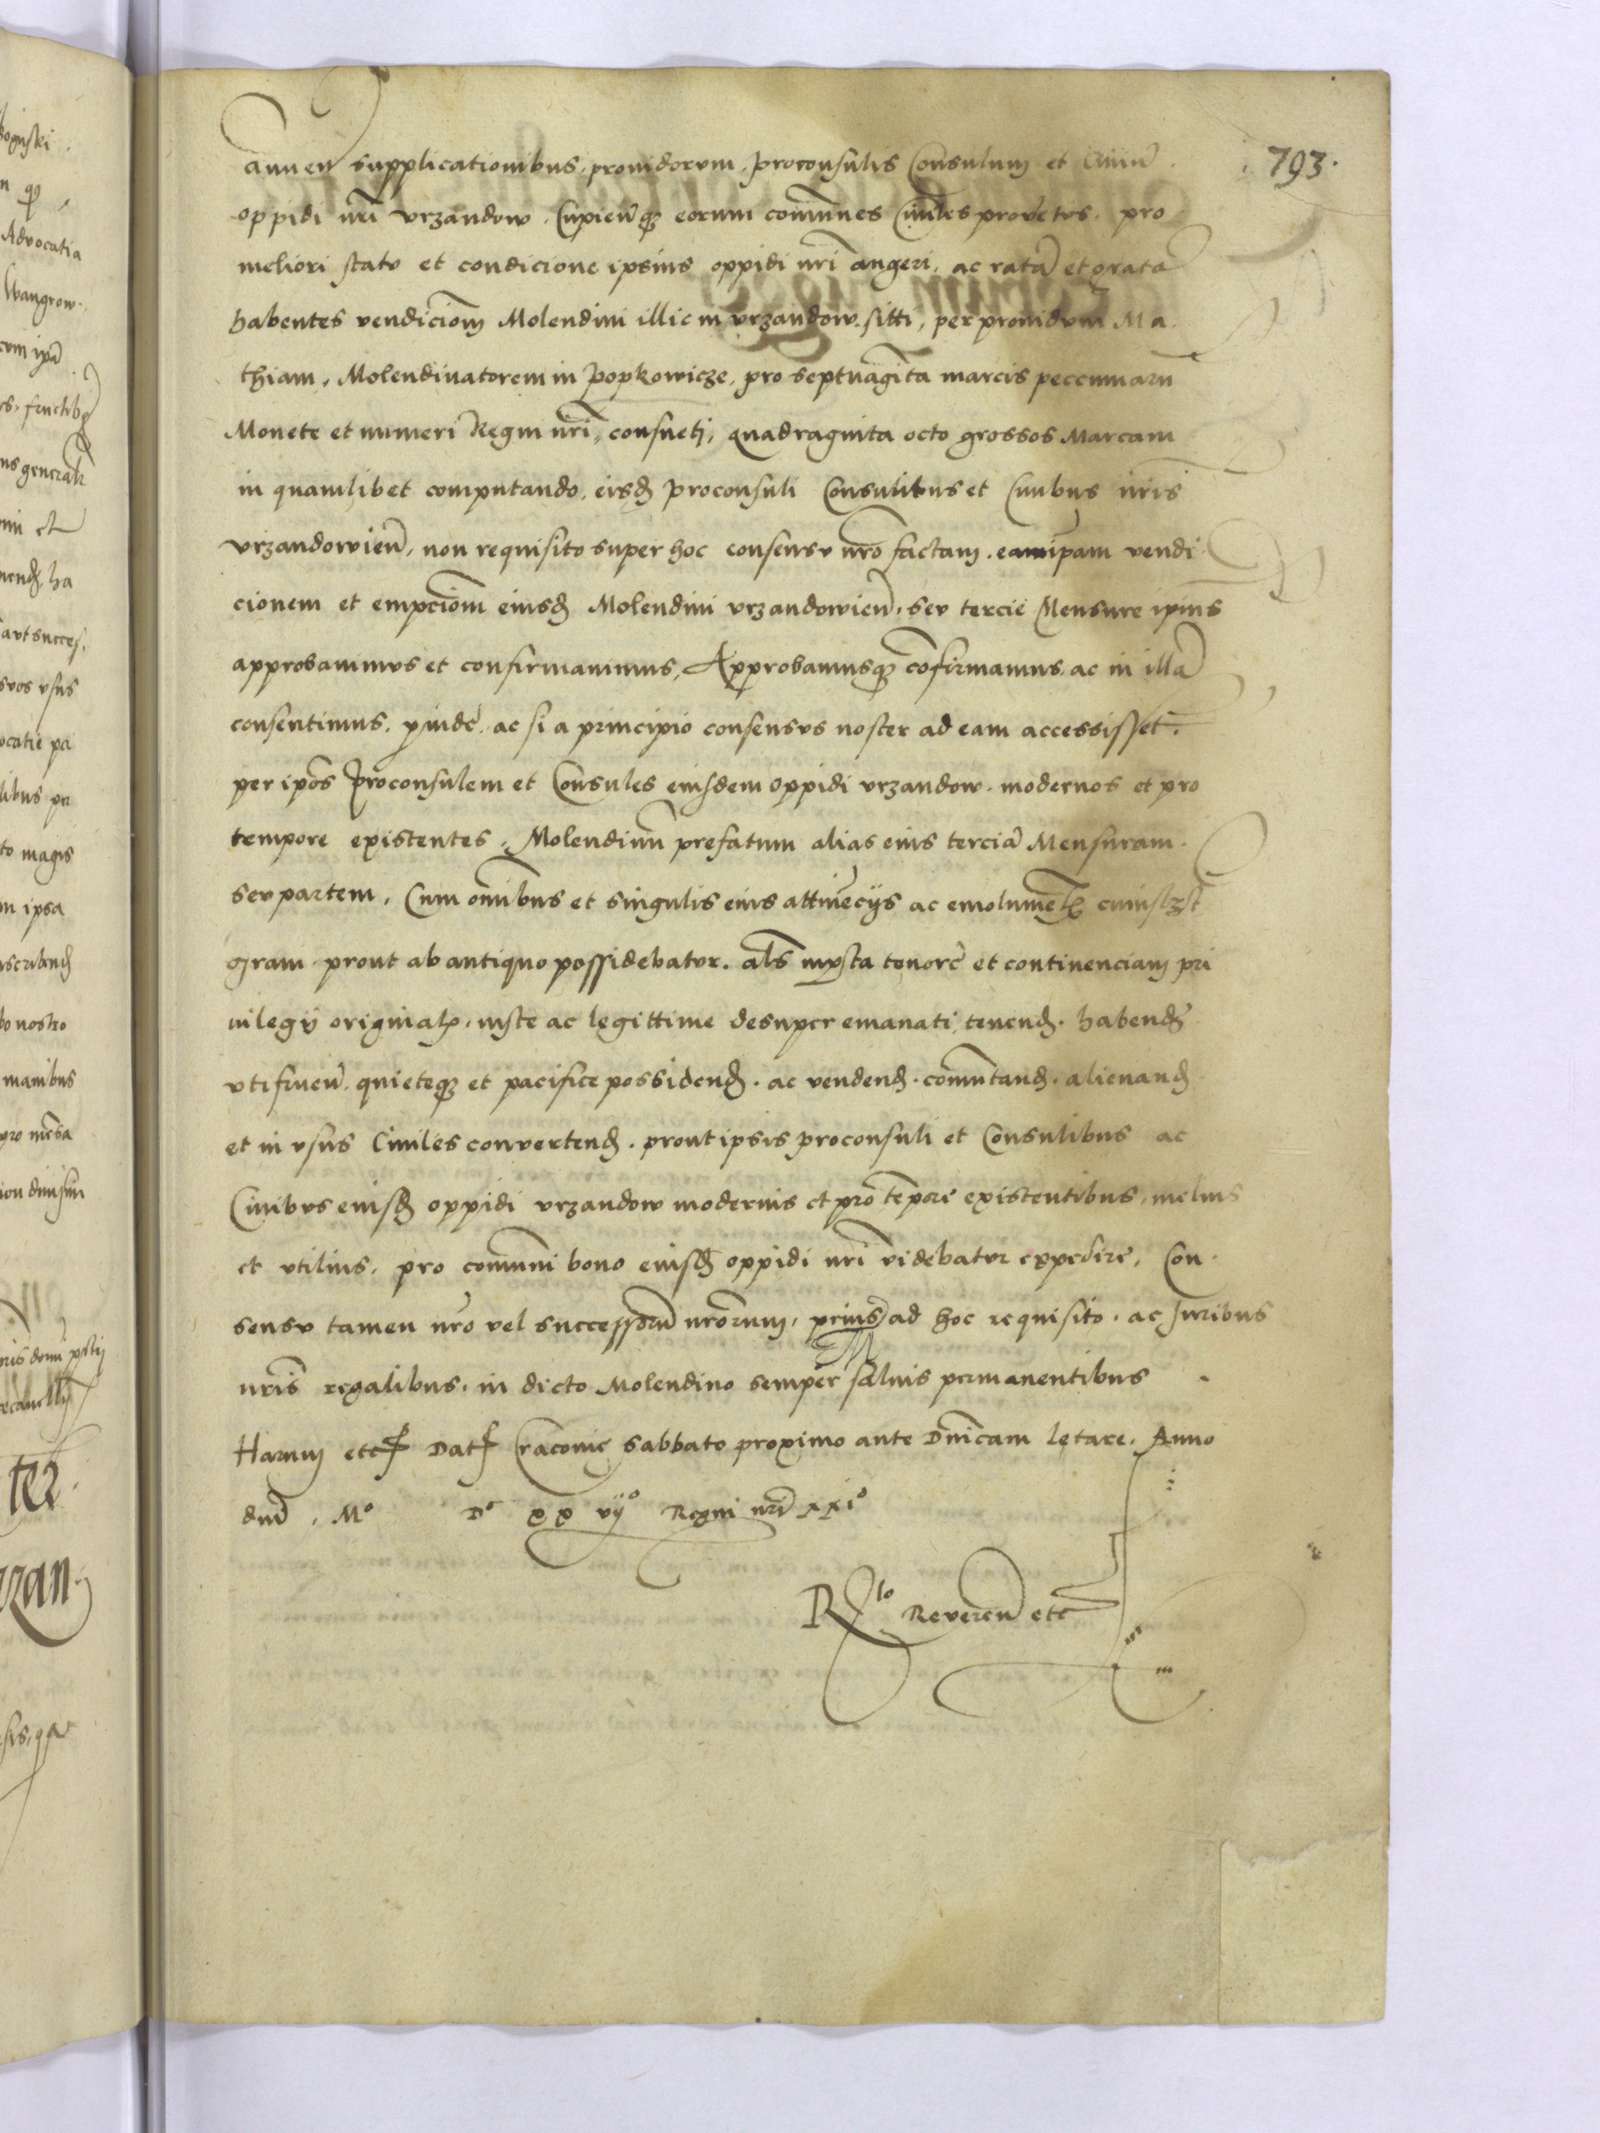 793.
annuen supplicationibus, prouidorum, proconsulis Consulum et Ciuiu
oppidi nri vrzandow. Cupienq eorum comunes Ciuiles prouetus, pro
meliori statu et condicione ipsius oppidi nri augeri, ac rata et grata
habentes vendiciom Molendini illic in vrzandow. sitti, per prouidum Ma
thiam, Molendinatorem in Popkowicze, pro septuaginta marcis peccuniaru
Monete et numeri Regni nri, consueti, quadraginta octo grossos Marcam
in quamlibet computando, eisd proconsuli Consulibus et Ciuibus nris
vrzandowien, non requisito super hoc consensu nro factam. eam ipam vendi
cionem et empciom eiusd Molendini vrzandowien. seu tercie Mensure ipius
approbauimus et confirmauimus, Approbamusq cofirmamus. ac in illa
consentimus, pinde, ac si a principio consensus noster ad eam accessisset.
per ipos proconsulem et Consules eiusdem oppidi vrzandow. modernos et pro
tempore existentes, Molendinu prefatum alias eius tercia Mensuram.
seu partem, Cum omibus et singulis eius attinecijs ac emolumet
prout ab antiquo possidebatur. als iuxta tenore et continenciam pri
uilegij original. iuste ac legittime desuper emanati, tenend. habend
vtifruen, quieteq et pacifice possidend. ac vendend. comutand. alienand
et in vsus Ciuiles convertend. prout ipsis proconsuli et Consulibus ac
Ciuibus eiusd oppidi vrzandow modernis et pro tempore existentibus, melius
et vtilius, pro comuni bono eiusd oppidi nri videbatur expedire, Con
sensu tamen nro vel successoru nrorum, prius ad hoc requisito. ac Juribus
nris regalibus, in dicto Molendino semper saluis permanentibus.
Harum etc Dat Craconie sabbato proximo ante Dnicam letare. Anno
dni. Mo Do xx vijo Regni nri xxio
Rto Reveren etc